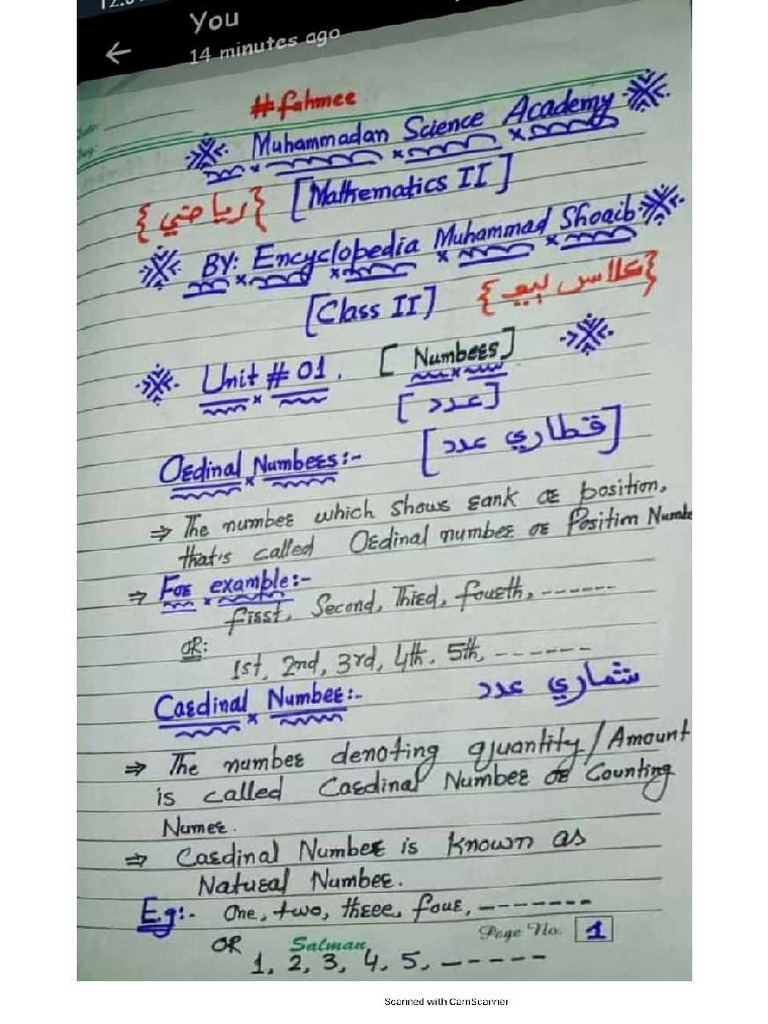 You
14 minutes ago
#fahmee
Muhammadan Science Academy
{رياضي} [Mathematics II]
BY: Encyclopedia Muhammad Shoaib
[Class II] {ڪلاس ٻيو}
Unit # 01. [Numbers]
[عدد]
Ordinal Numbers:- [قطاري عدد]
⇒ The number which shows rank or position,
that's called Ordinal number or Position Numbe
⇒ For example:-
first, Second, Third, fourth, -------
OR:
1st, 2nd, 3rd, 4th. 5th, -------
Cardinal Number:- شماري عدد
⇒ The number denoting quantity/Amount
is called Cardinal Number or Counting
Numer.
⇒ Cardinal Number is known as
Natural Number.
E.g:- One, two, three, four, --------
Page No. 1
OR Salman
1, 2, 3, 4, 5, ------
Scanned with CamScanner